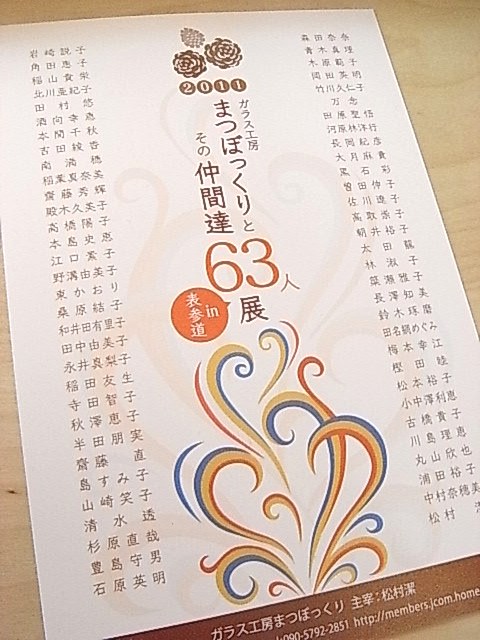 2011
ガラス工房
まつぼっくりと
その仲間達
63人展
in
表参道
森田奈奈
青木真理
木原範子
岡田英明
竹川久仁子
万念
田原聖悟
河原林洋行
長岡紀彦
大月麻貴
黒石彩
曽田伸子
佐川遼子
高取崇子
朝井裕子
太田龍
林淑子
菜瀬雅子
長澤知美
鈴木琢磨
田名網めぐみ
梅本幸江
樫田睦
松本裕子
小中澤利恵
古橋貴子
川島理恵
丸山欣也
浦田裕子
中村奈穂美
松村
岩崎説子
角田恵子
稲山貴栄
北川亜紀子
田村悠
酒向幸恵
本間千秋
古田綾香
南満穂
稲葉真奈美
齋藤秀輝
殿木久美子
高橋陽子
本島史恵
江口素子
野溝由美子
東かおり
桑原結子
和井田有里子
田中由美子
永井真梨子
稲田友生
寺田智子
秋澤恵子
半田朋実
齋藤直
島すみ子
山崎笑子
清水透
杉原直哉
豊島守男
石原英明
ガラス工房まつぼっくり 主宰:松村潔
090-5792-2851 http://members.jcom.home